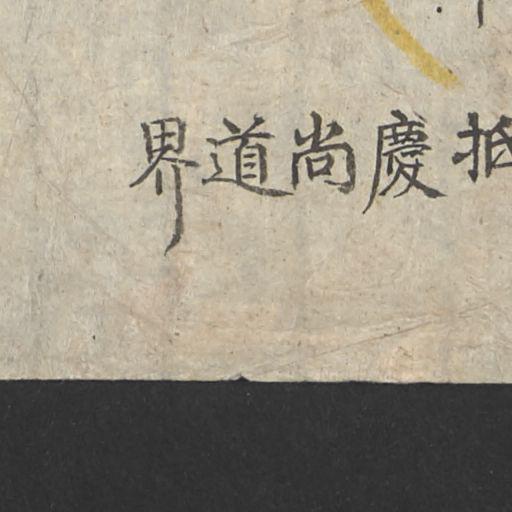 抵慶尚道界